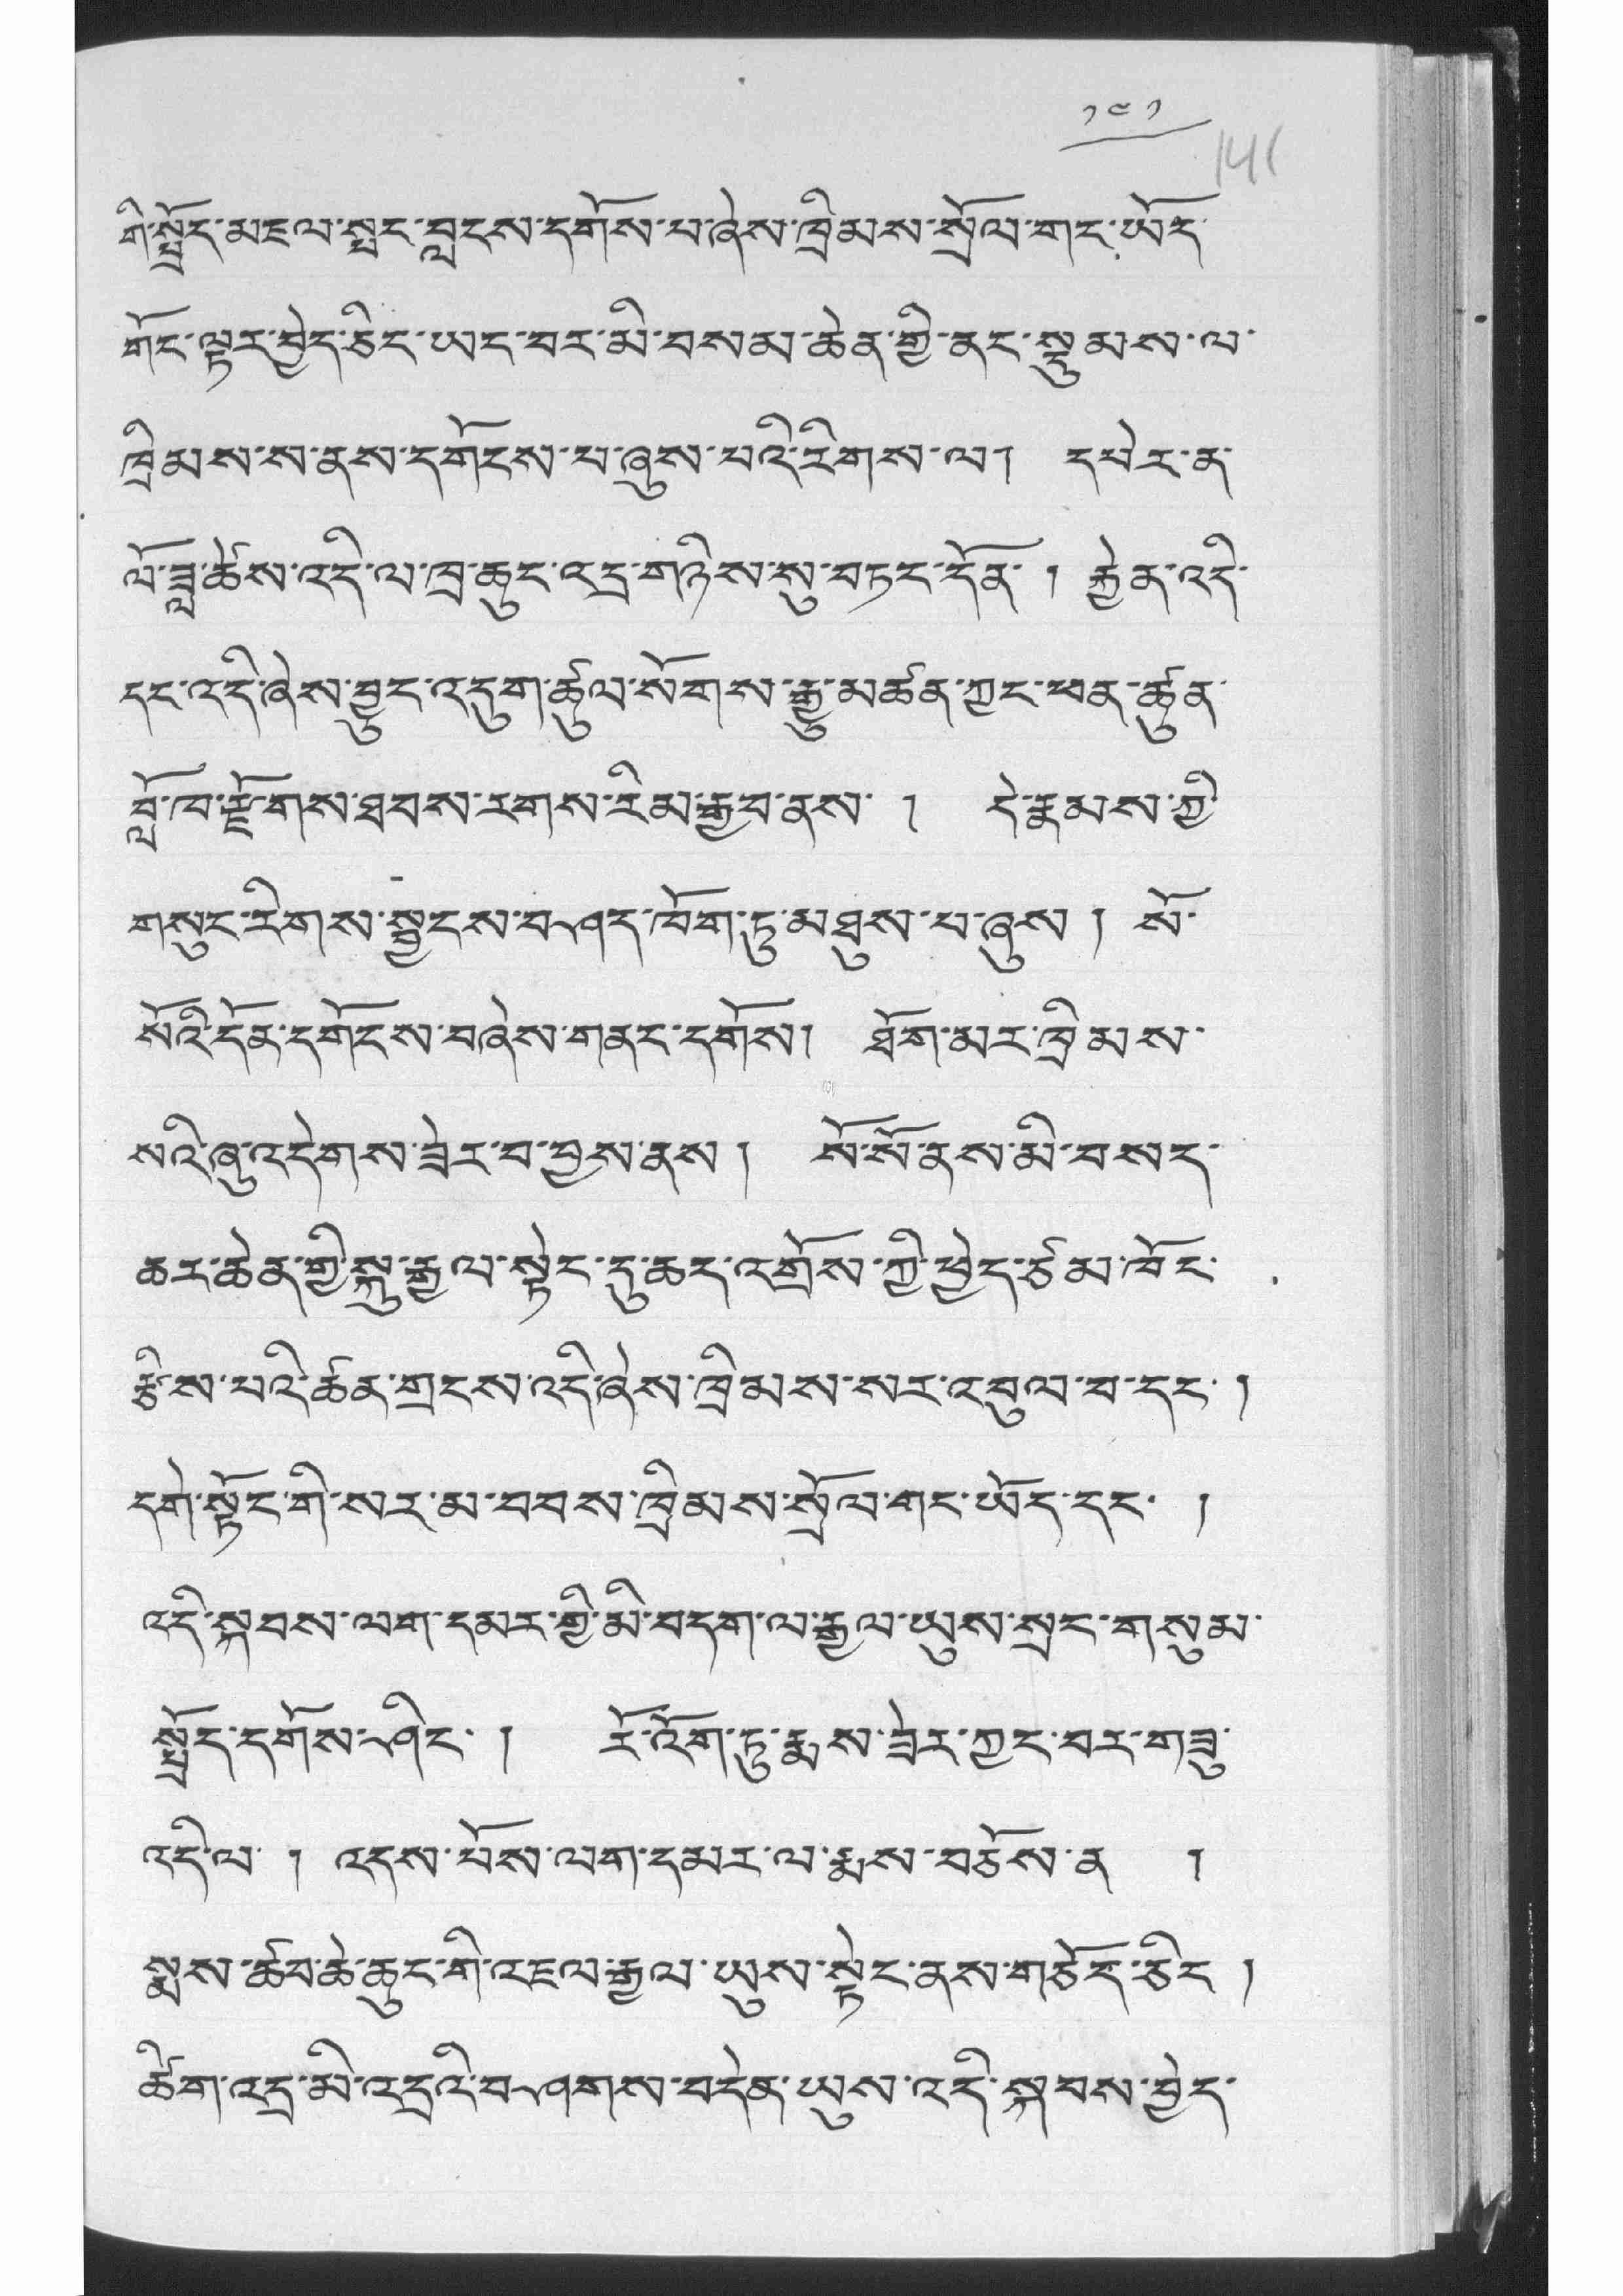 ༡༤༡
141
གི་སྤྲོད་མཇལ་སྤང་བླངས་དགོས་པ་ཞེས་ཁྲིམས་སྲོལ་གང་ཡོད་
གོང་ལྟར་བྱེད་ཅིང་ཡང་བར་མི་བསམ་ཆེན་གྱི་ནང་སྡུམས་ལ་
ཁྲིམས་ས་ནས་དགོངས་པ་ཞུས་པའི་རིགས་ལ། དཔེར་ན་
ལོ་ཟླ་ཚེས་འདི་ལ་ཁྲ་ཆུང་འདྲ་གཉིས་སུ་བཏང་དོན་ ། རྐྱེན་འདི་
དང་འདི་ཞེས་བྱུང་འདུག་ཚུལ་སོགས་རྒྱུ་མཚན་ཀྱང་ཕན་ཚུན་
བློ་ཁ་རྫོགས་ཐབས་རགས་རིམ་རྒྱབ་ནས ། དེ་རྣམས་ཀྱི
གསུང་རིགས་སྦྱངས་བཤད་ཁོག་ཏུ་མཐུས་པ་ཞུས ། སོ་
སོའི་དོན་དགོངས་བཞེས་གནང་དགོས། ཐོག་མར་ཁྲིམས་
སའི་ཞུ་འདེགས་ཟེར་བ་བྱས་ནས ། སོ་སོ་ནས་མི་བསད་
ཆར་ཆེན་གྱི་སྐུ་རྒྱལ་སྟེང་དུ་ཆད་འགྲོས་ཀྱི་ཕྱེད་ཙམ་ཁོང་
རྩིས་པའི་ཚན་གྲངས་འདི་ཞེས་ཁྲིམས་སར་འབུལ་བ་དང་ །
དགེ་སྟོང་གི་སར་མ་བབས་ཁྲིམས་སྲོལ་གང་ཡོད་དང་ །
འདི་སྐབས་ལག་དམར་གྱི་མི་བདག་ལ་རྒྱལ་ཡུས་སྲང་གསུམ་
སྤྲོད་དགོས་ཤིང་ ། རོ་འོག་ཏུ་རྨས་ཟེར་ཀྱང་བར་གཟུ་
འདི་ལ ། འདས་པོས་ལག་དམར་ལ་རྨས་བཅོས་ན །
སྨས་ཚབ་ཆེ་ཆུང་གི་འཇལ་རྒྱལ་ཡུས་སྟེང་ནས་གཅོད་ཅིང །
ཚིག་འདྲ་མི་འདྲའི་བཤགས་བདེན་ཡུས་འདི་སྐབས་བྱེད་